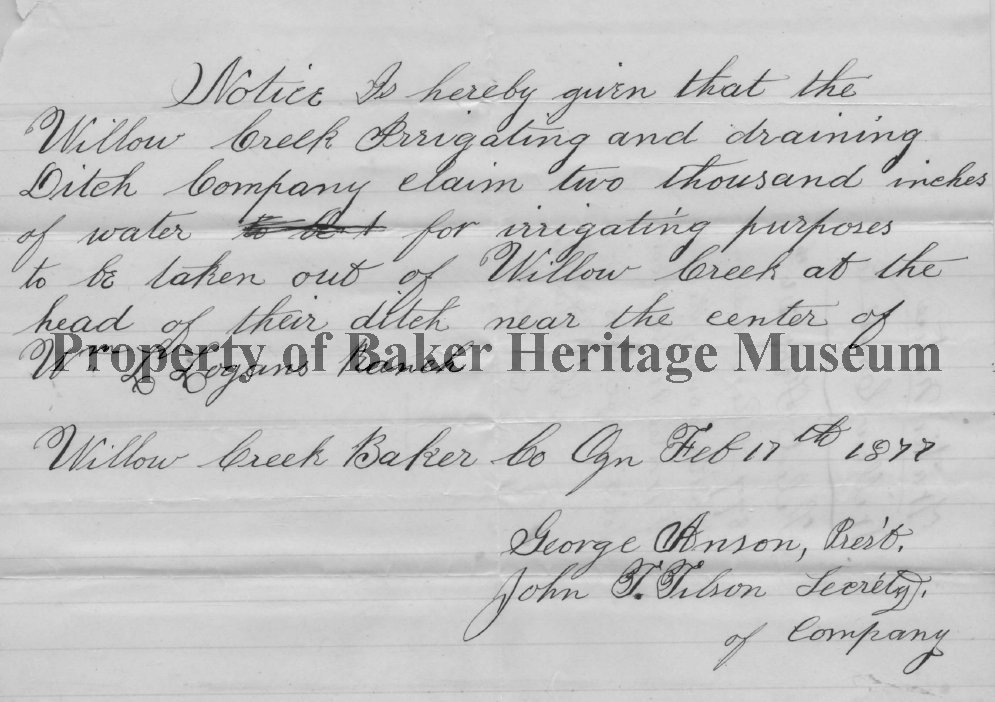 Notice Is hereby given that the
Willow Creek Irrigating and draining
Ditch Company claim two thousand inches
of water to be t for irrigating purposes
to be taken out of Willow Creek at the
head of their ditch near the center of
Property of Baker Heritage Museum
Wm L Logans Ranch
Willow Creek Baker Co Ogn Feb 17th 1877
George Anson, Pres't.
John T. Tilson Secrety.
of Company